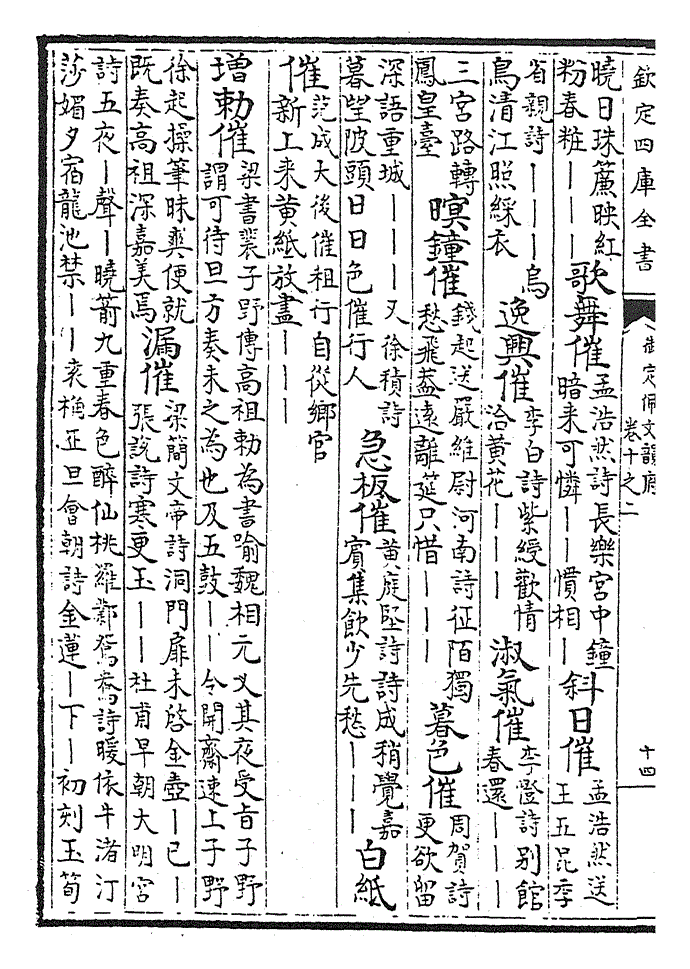 欽定四庫全書
御定佩文韻府
卷十之二
十四
曉日珠簾映紅
粉春粧｜｜｜
歌舞催
孟浩然詩長樂宮中鐘
暗来可憐｜｜慣相｜
斜日催
孟浩然送
王五昆季
省親詩｜｜｜烏
鳥清江照綵衣
逸興催
李白詩紫綬歡情
洽黄花｜｜｜
淑氣催
李憕詩别館
春還｜｜｜
三宮路轉
鳳皇臺
暝鐘催
錢起送嚴維尉河南詩征陌獨
愁飛葢遠離筵只惜｜｜｜
暮色催
周賀詩
更欲留
深語重城｜｜｜又徐積詩
暮望陂頭日日色催行人
急板催
黄庭堅詩詩成稍覺嘉
賓集飲少先愁｜｜｜
白紙
催
范成大後催租行自從鄉官
新上来黄紙放盡｜｜｜
增勅催
梁書裴子野傳高祖勅為書喻魏相元乂其夜受㫖子野
謂可待旦方奏未之為也及五鼓｜｜令開齋速上子野
徐起操筆昧爽便就
既奏高祖深嘉美焉
漏催
梁簡文帝詩洞門扉未啓金壺｜已｜
張說詩寒更玉｜｜杜甫早朝大明宮
詩五夜｜聲｜曉箭九重春色醉仙桃羅鄴鴛鴦詩暖依牛渚汀
莎媚夕宿龍池禁｜｜袁桷正旦會朝詩金蓮｜下｜初刻玉筍